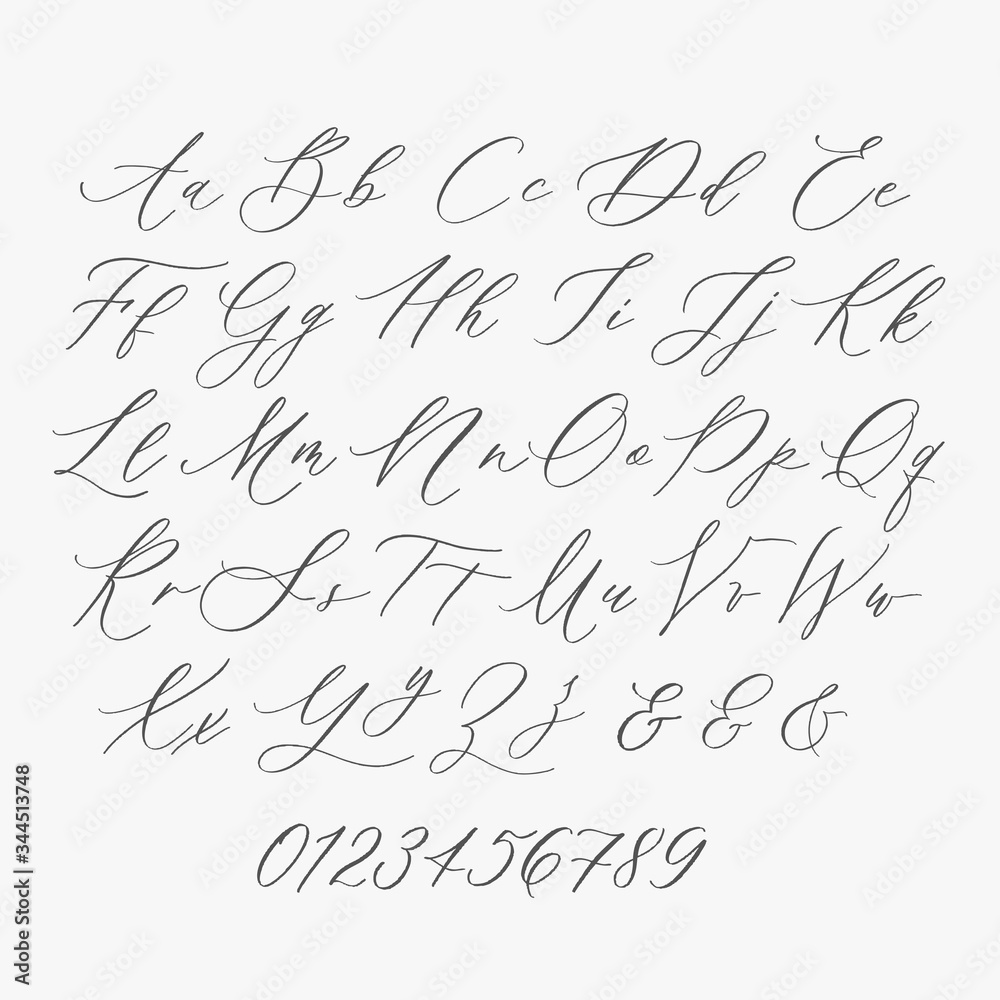 Aa Bb Cc Dd Ee
Ff Gg Hh Ii Jj Kk
Ll Mm Nn Oo Pp Qq
Rr Ss Tt Uu Vv Ww
Xx Yy Zz & & &
0123456789
Adobe Stock | #344513748